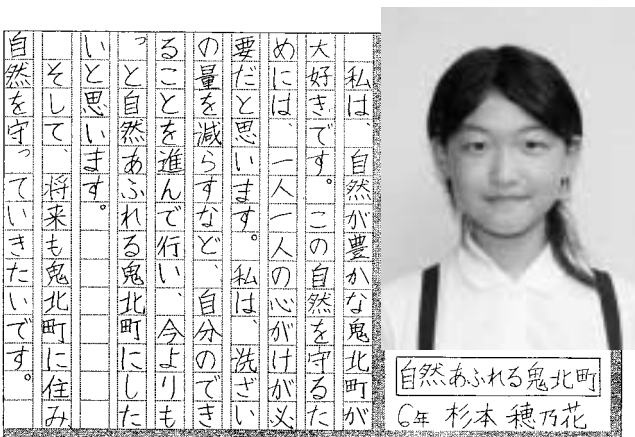 自然あふれる鬼北町
6年 杉本 穂乃花
私は、自然が豊かな鬼北町が
大好きです。この自然を守るた
めには、一人一人の心がけが必
要だと思います。私は、洗ざい
の量を減らすなど、自分のでき
ることを進んで行い、今よりも
っと自然あふれる鬼北町にした
いと思います。
そして、将来も鬼北町に住み
自然を守っていきたいです。